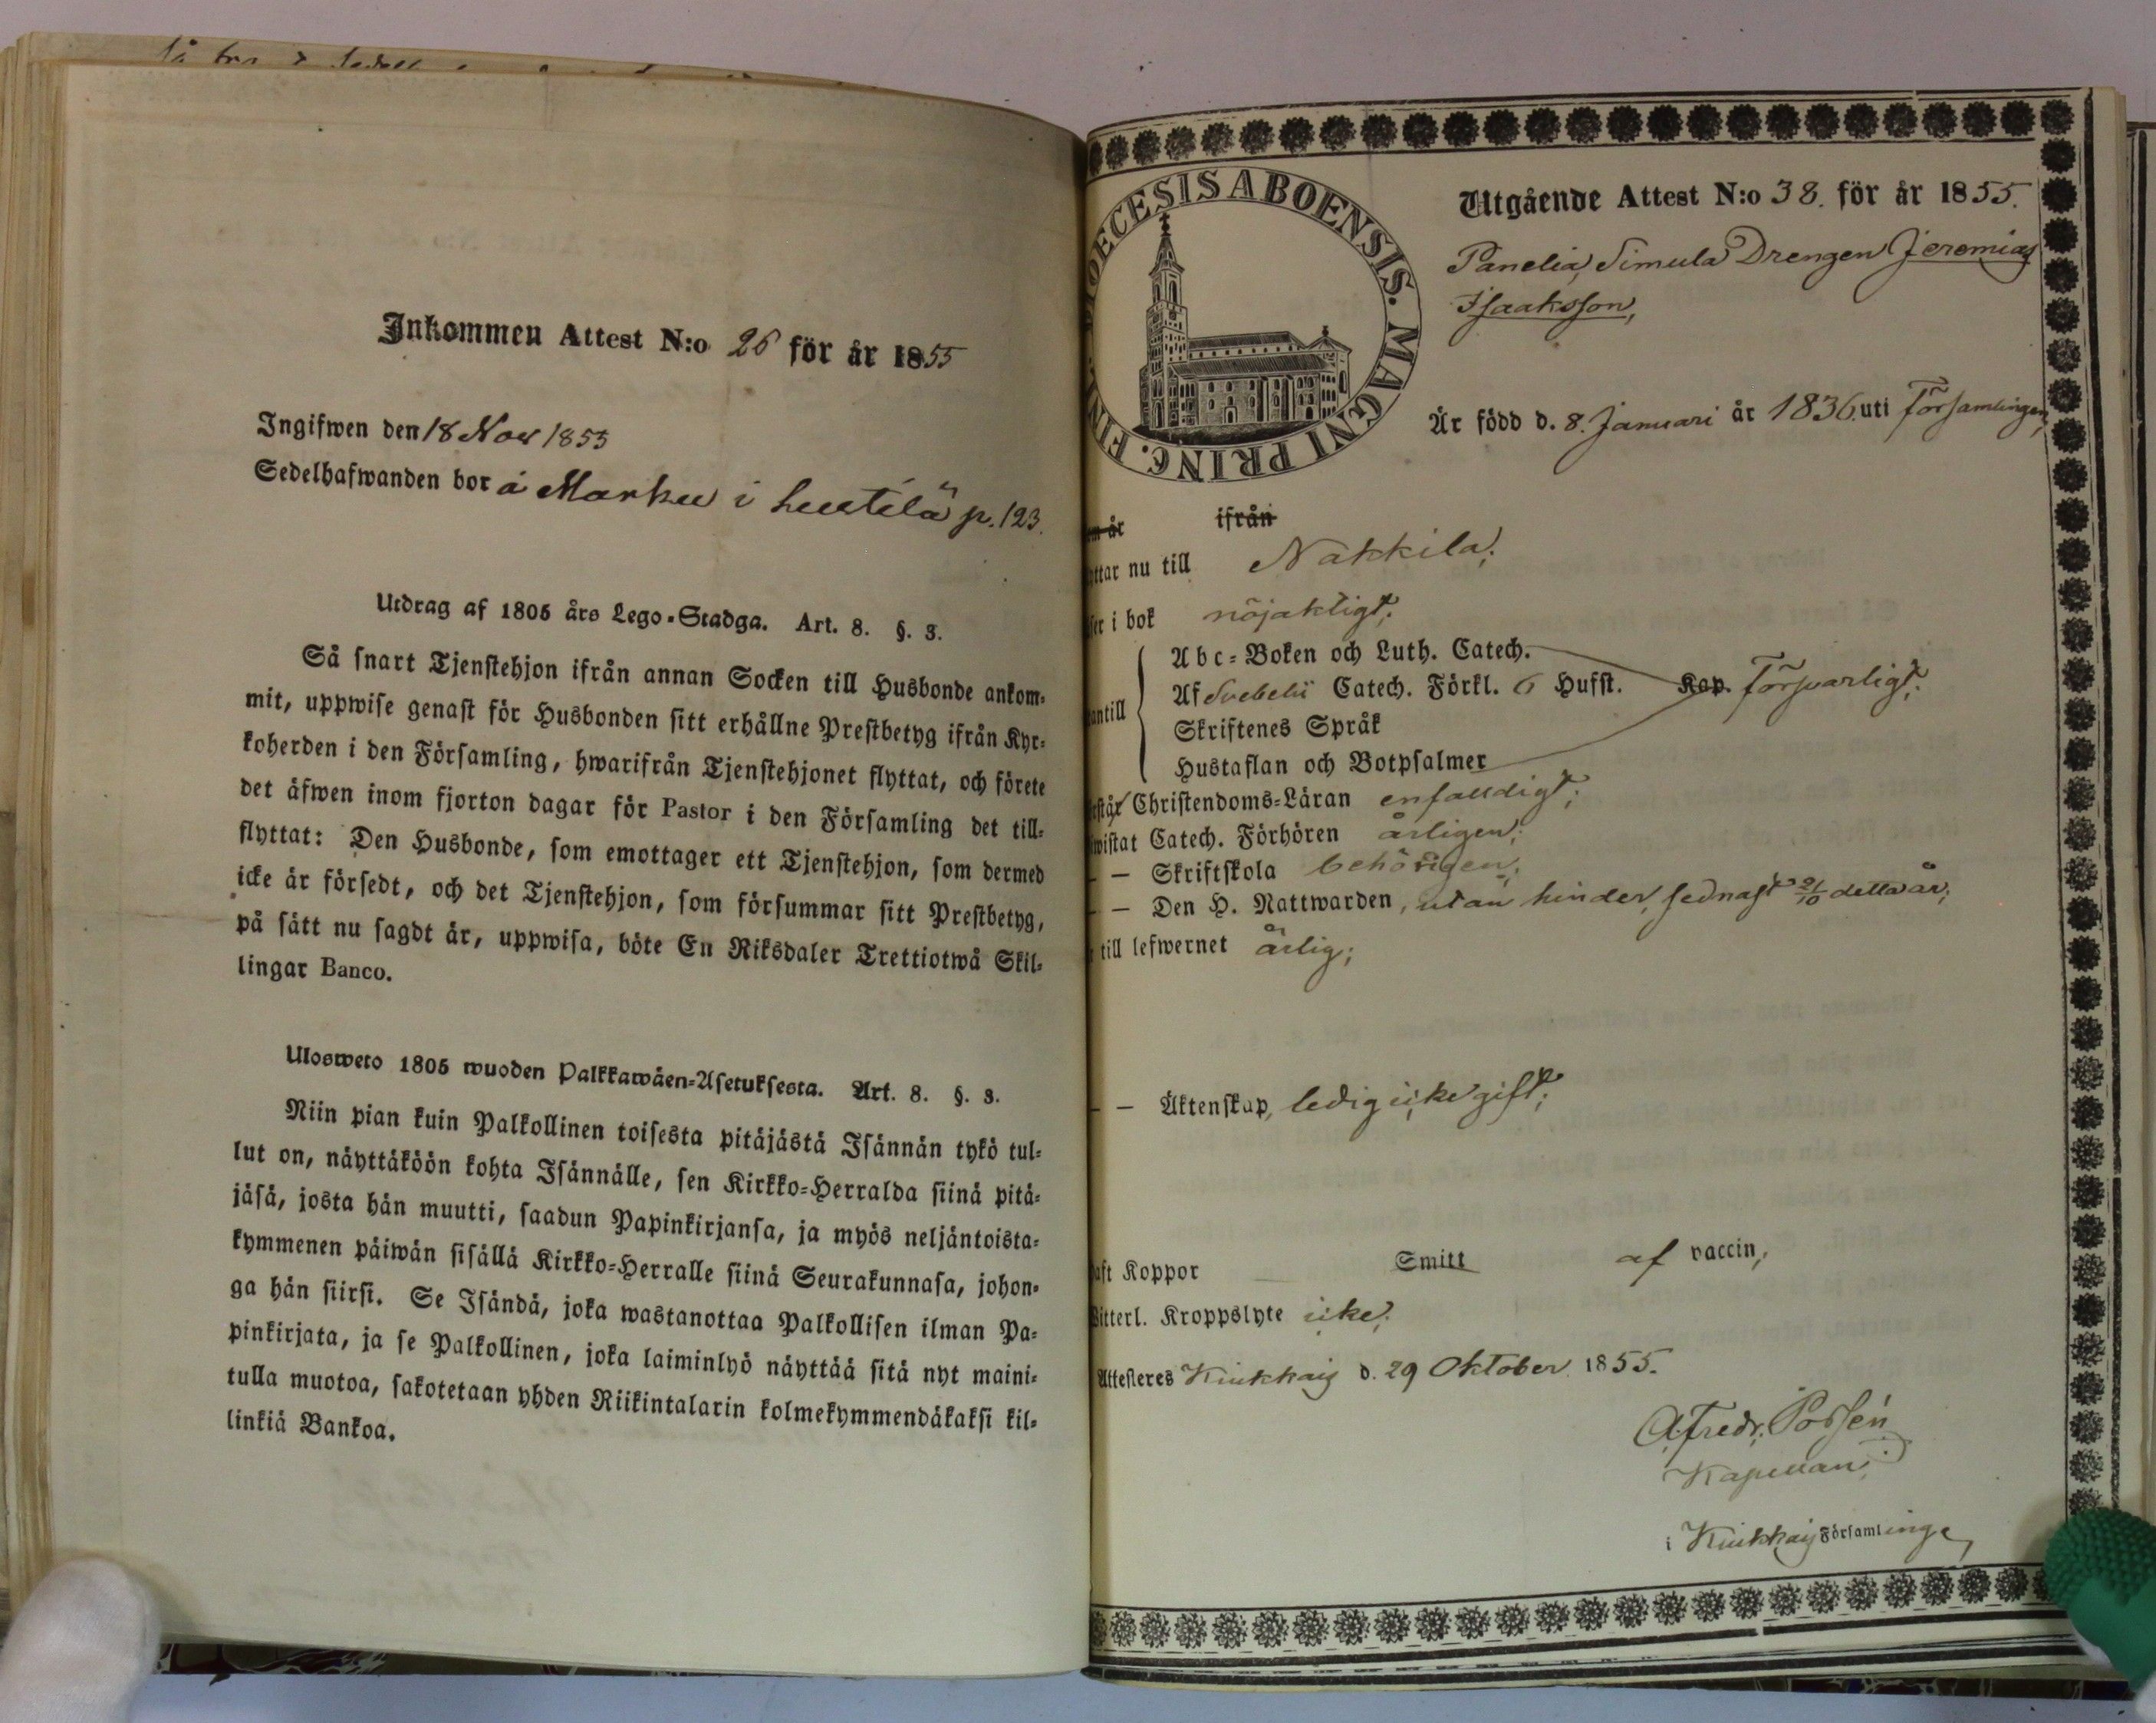 Inkommen Attest N:o 26 för år 1855
Ingifwen den 18 Nov 1855
Sedelhafwanden bor å Marku i hustilä p. 123.
Utdrag af 1805 års Lego-Stadga. Art. 8. §. 3.
Så snart Tjenstehjon ifrån annan Socken till Husbonde ankom-
mit, uppwise genast för Husbonden sitt erhållne Prestbetyg ifrån Kyr-
koherden i den Församling, hwarifrån Tjenstehjonet flyttat, och förete
det äfwen inom fjorton dagar för Pastor i den Församling det till-
flyttat: Den Husbonde, som emottager ett Tjenstehjon, som dermed
icke är försedt, och det Tjenstehjon, som försummar sitt Prestbetyg,
på sätt nu sagdt är, uppwisa, böte En Riksdaler Trettiotwå Skil-
lingar Banco.
Ulosweto 1805 wuoden Palkkawäen-Asetuksesta. Art. 8. §. 3.
Niin pian kuin Palkollinen toisesta pitäjästä Isännän tykö tul-
lut on, näyttäköön kohta Isännälle, sen Kirkko-Herralda siinä pitä-
jäsä, josta hän muutti, saadun Papinkirjansa, ja myös neljäntoista-
kymmenen päiwän sisällä Kirkko-Herralle siinä Seurakunnasa, johon-
ga hän siirsi. Se Isändä, joka wastanottaa Palkollisen ilman Pa-
pinkirjata, ja se Palkollinen, joka laiminlyö näyttää sitä nyt maini-
tulla muotoa, sakotetaan yhden Riikintalarin kolmekymmendäkaksi kil-
linkiä Bankoa.
DIOECESIS ABOENSIS. MAGNI PRINC. FINL.
Utgående Attest N:o 38. för år 1855.
Panelia, Simula Drengen Jeremias
Isaaksson,
Är född d. 8. Januari år 1836. uti Församlingen,
m år ifrån
ttar nu till Nakkila;
ser i bok nöjaktigt;
antill
Abc-Boken och Luth. Catech.
Af Svebelii Catech. Förkl. 6 Hufst. Kap. försvarligt;
Skriftenes Språk
Hustaflan och Botpsalmer
rstår Christendoms-Läran enfaldigt;
wistat Catech. Förhören årligen;
– – Skriftskola behörigen;
– – Den H. Nattwarden, utan hinder, sednast 21/10 detta år;
r till lefwernet ärlig;
– – Äktenskap, ledig icke gift;
haft Koppor Smitt af vaccin,
Witterl. Kroppslyte icke;
Attesteres Kiukkais d. 29 Oktober 1855.
A. Fredr. Possén
Kapellan
i Kiukkais Församlinge